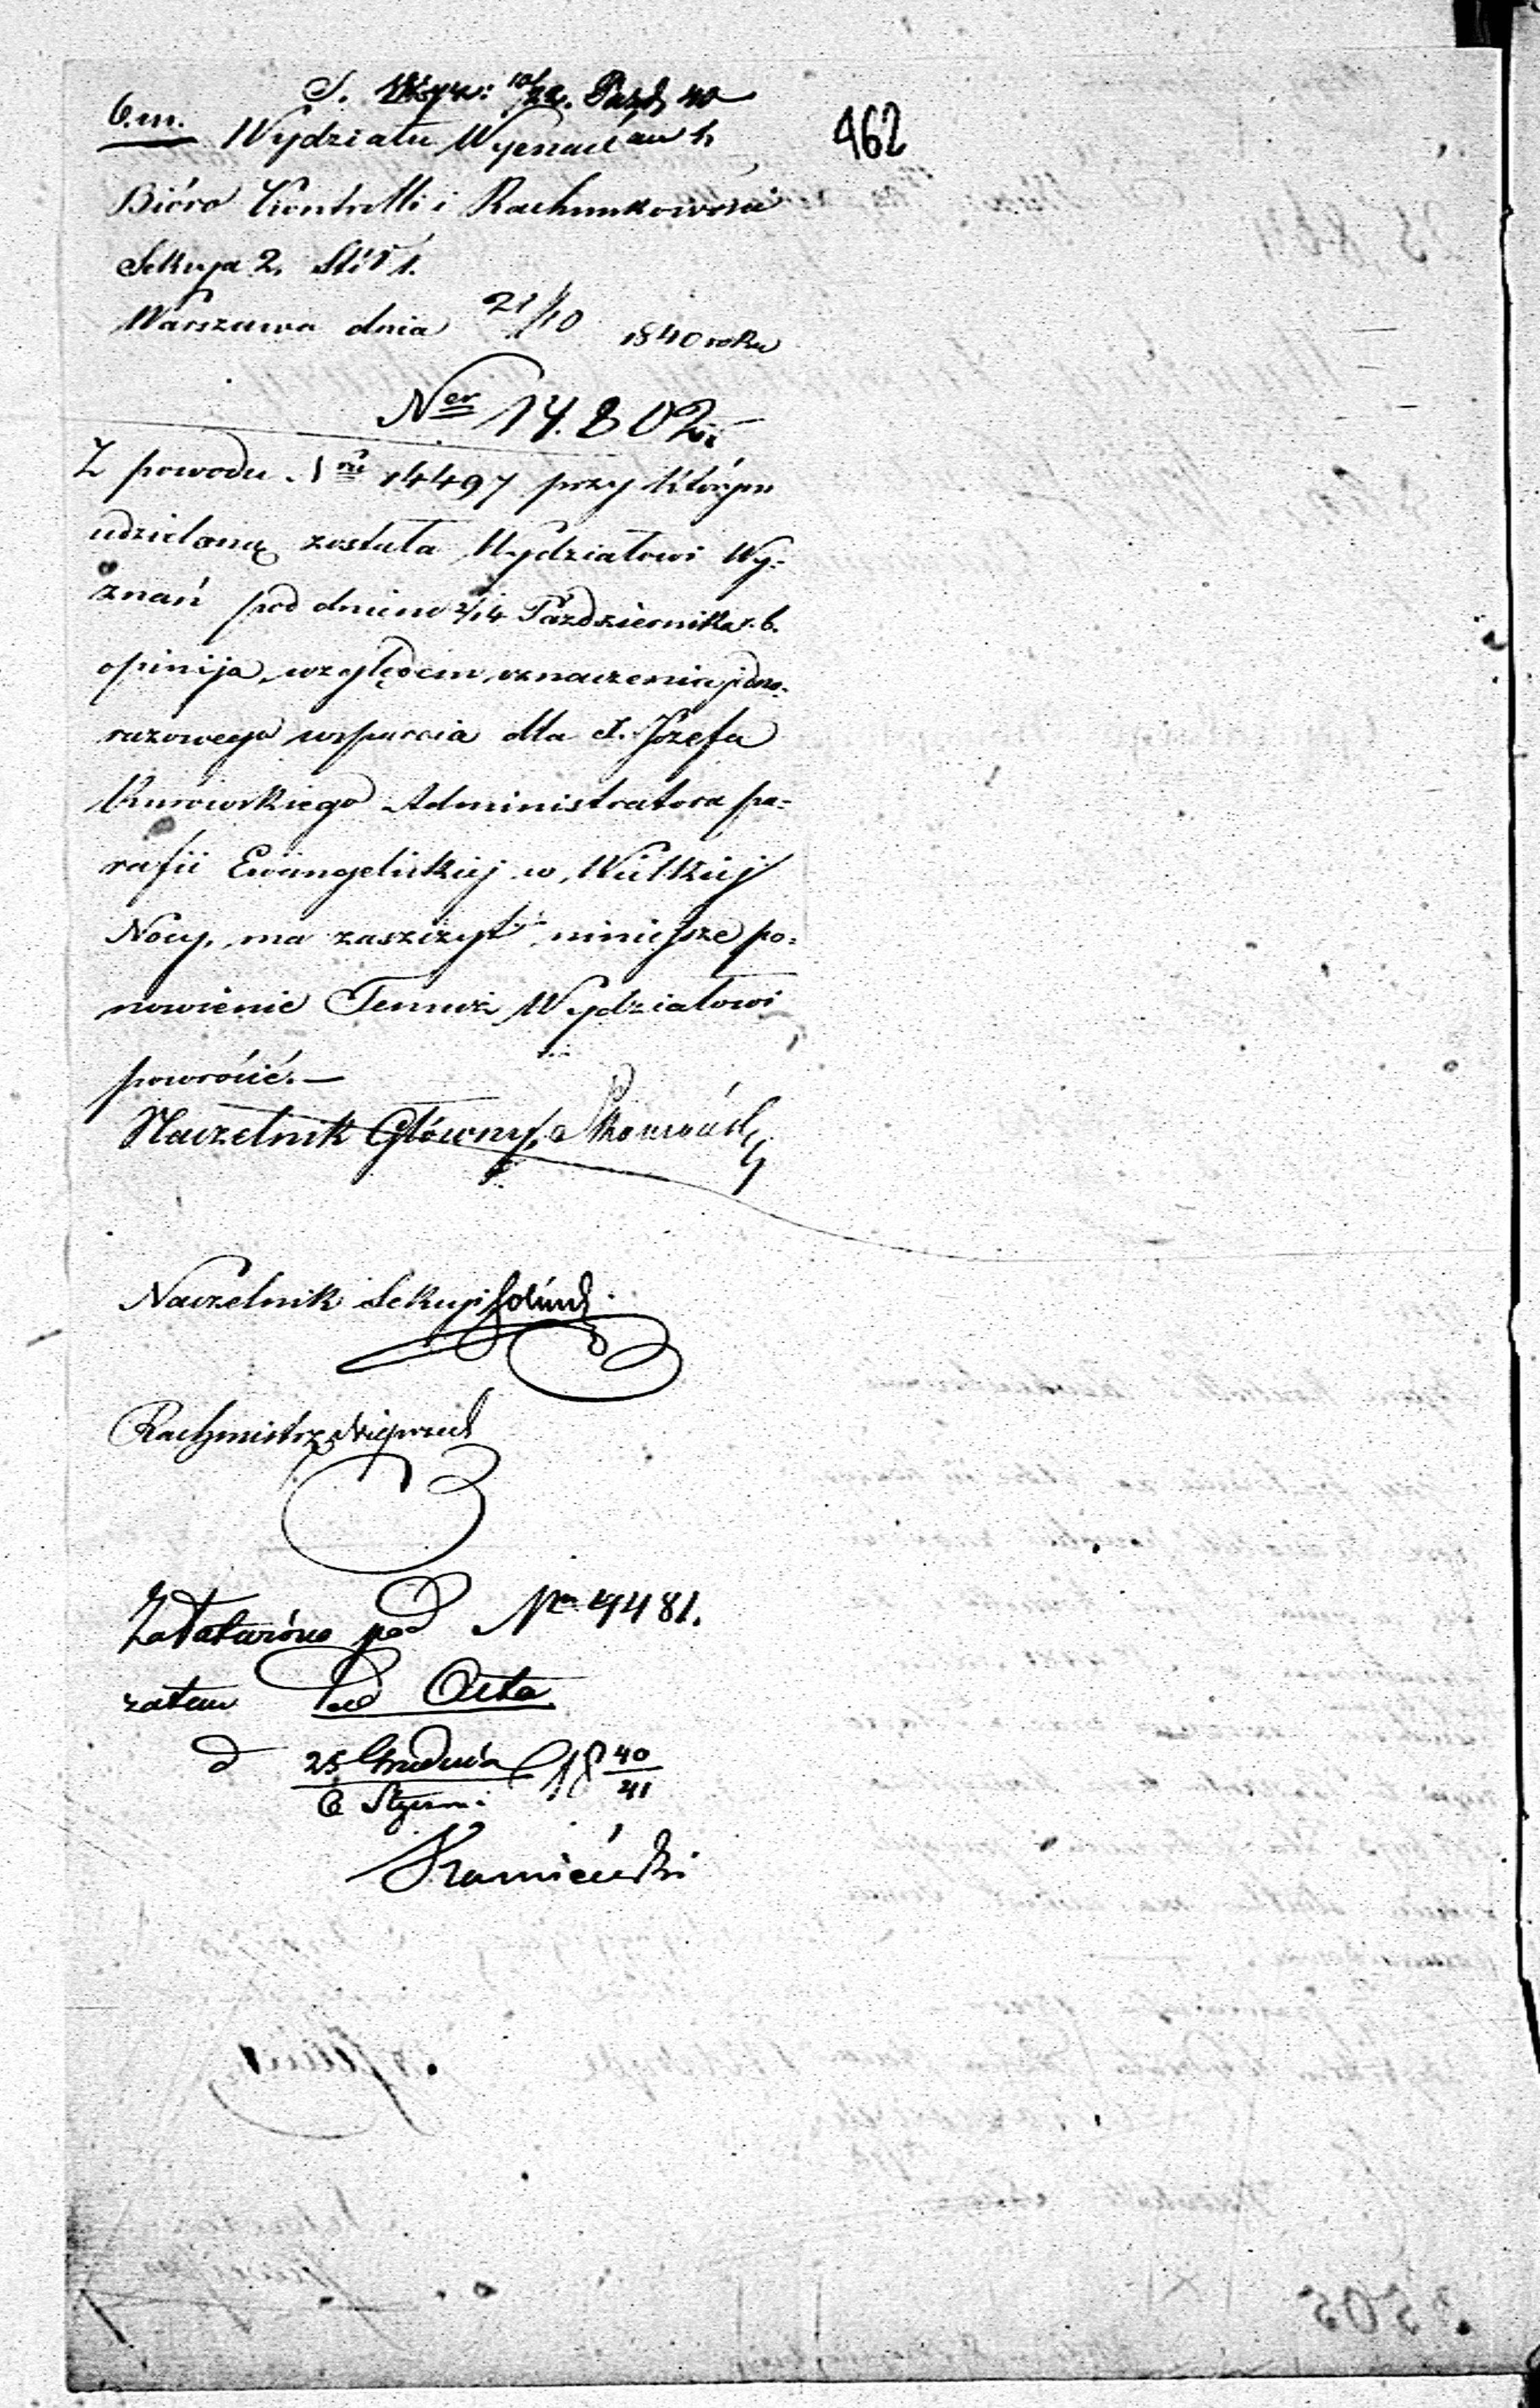 462
b. m.
Wydziału Wyznań
Bióro Kontrolli i Rachunkowości
Sekcya 2. Stół 1.
Warszawa dnia 21/10 1840 roku
Ner 14.802
Z powodu Nru 14497 przy którym
udzieloną została Wydziałowi Wy=
znań pod dniem 2/14 Października r. b.
opinija względem oznaczenia jedno-
razowego wsparcia dla X. Józefa
Administratora pa=
rafii Ewangelickiej w Wielkiej
Nocy, ma zaszczyt niniejsze po=
nowienie Temuż Wydziałowi
powrócić. —
Naczelnik Główny
Naczelnik Sekcyi
Rachmistrz
Załatwiono pod Nrem 19481.
zatem ad Acta
d 25 Grudnia / 6 Styczni: 18 40/41
Kamieński